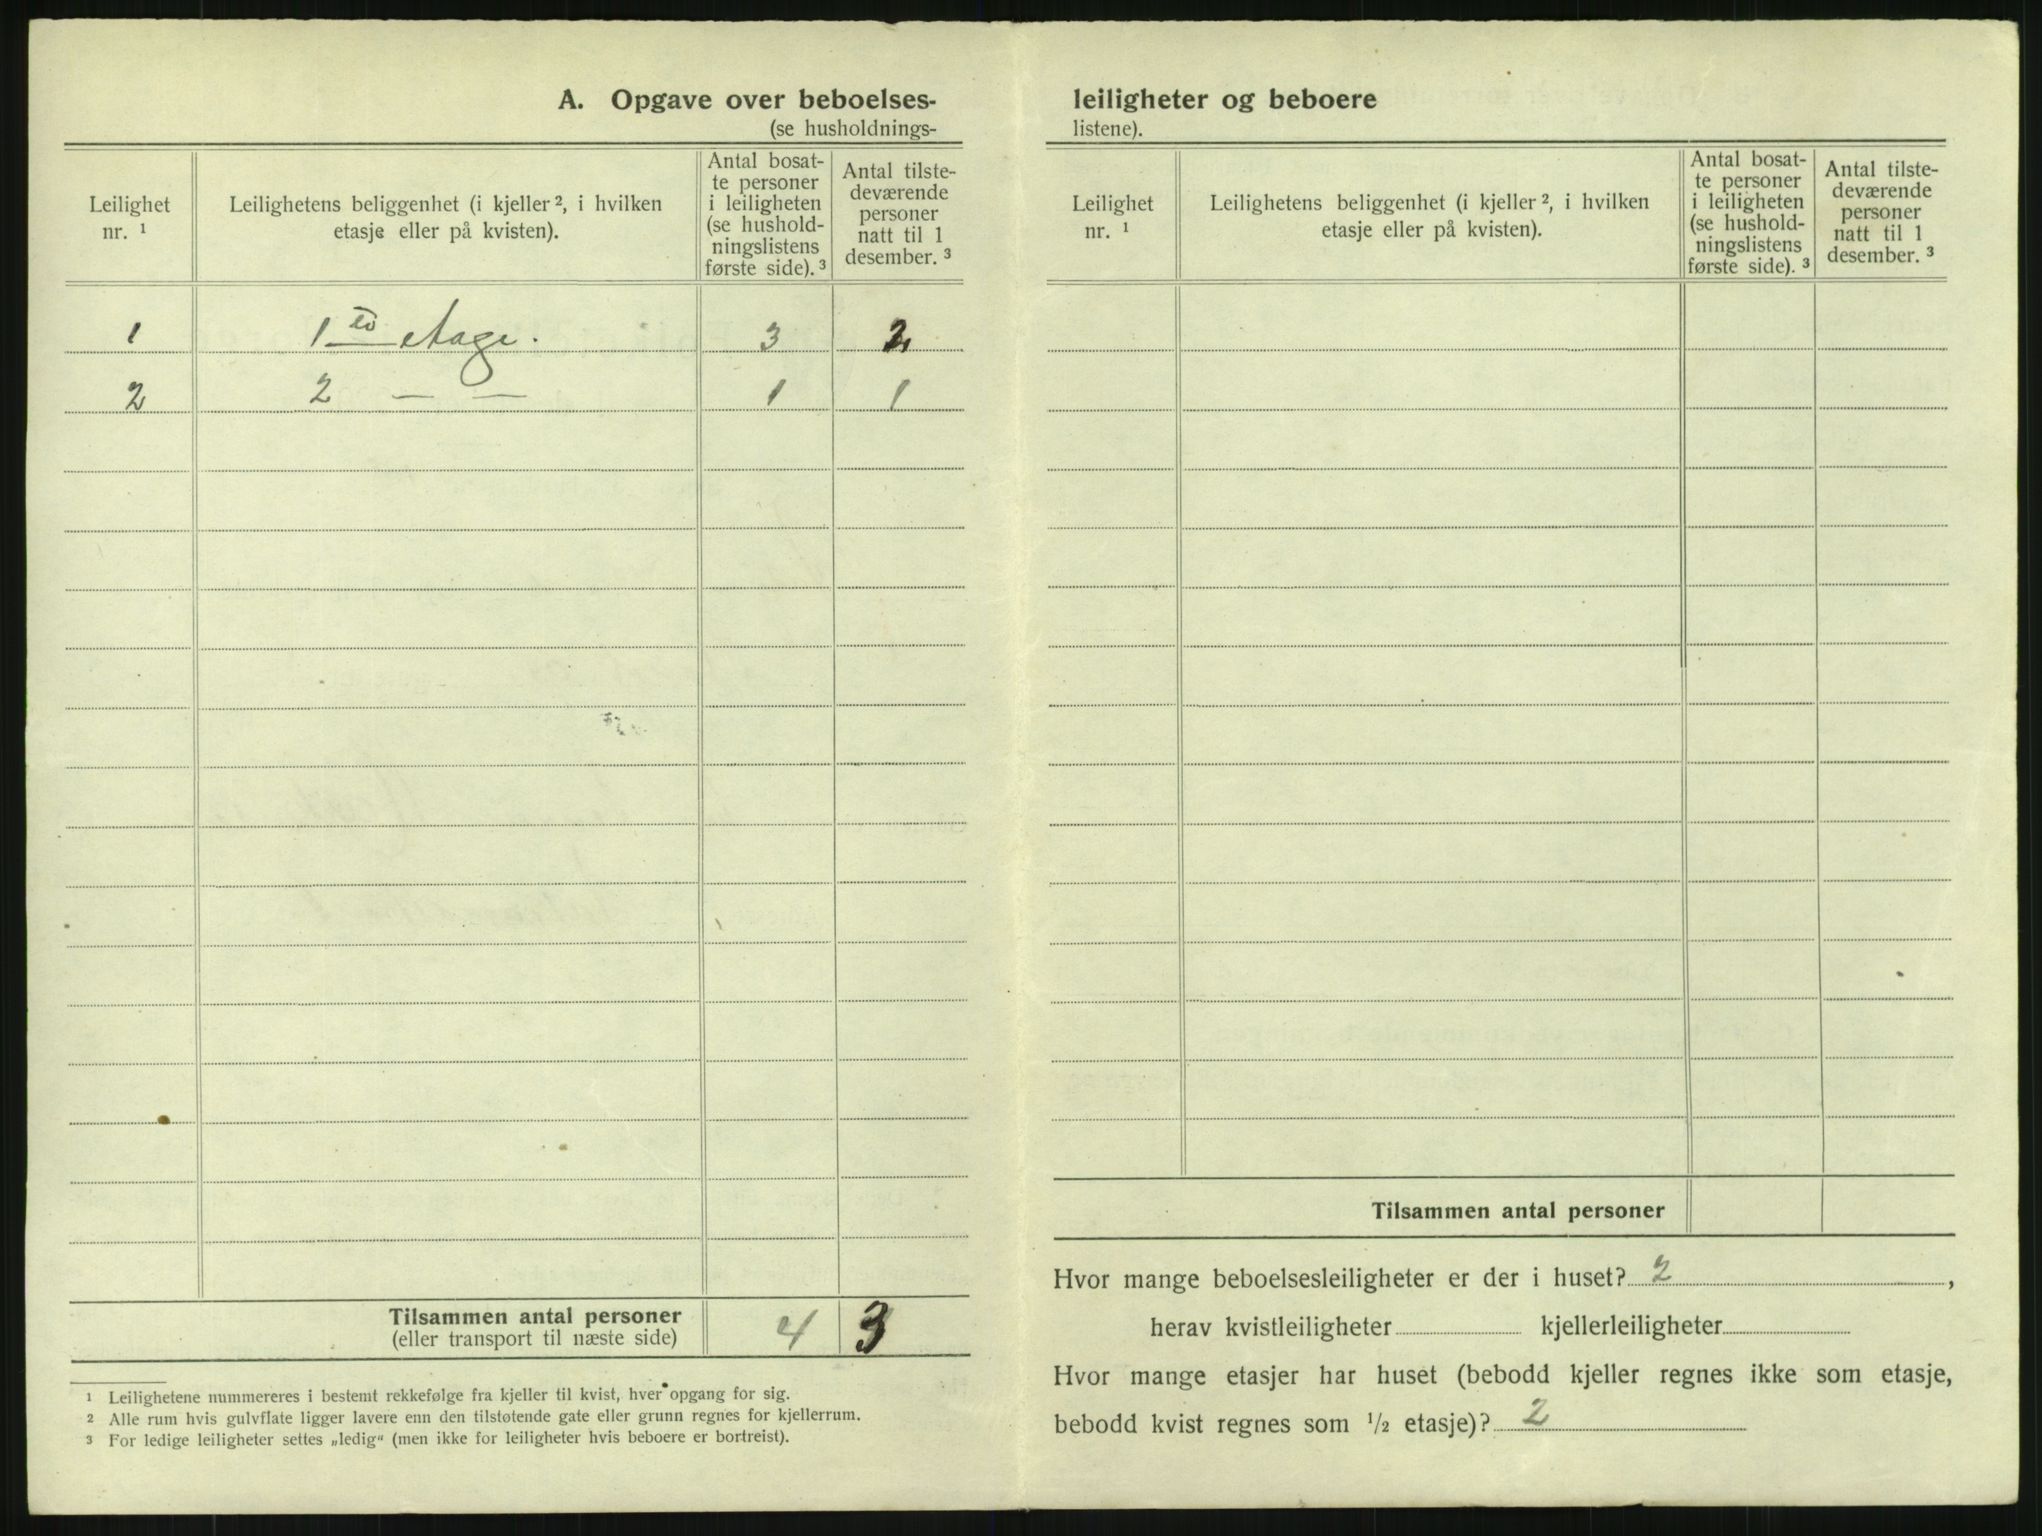 A. Opgave over beboelses-
(se husholdnings-
Leilighet nr. ¹
Leilighetens beliggenhet (i kjeller ², i hvilken
etasje eller på kvisten).
Antal bosat-
te personer
i leiligheten
(se hushold-
ningslistens
første side). ³
Antal tilste-
deværende
personer
natt til 1
desember. ³
1 1 etage. 3 2
2 2 — — 1 1
Tilsammen antal personer 4 3
(eller transport til næste side)
¹ Leilighetene nummereres i bestemt rekkefølge fra kjeller til kvist, hver opgang for sig.
² Alle rum hvis gulvflate ligger lavere enn den tilstøtende gate eller grunn regnes for kjellerrum.
³ For ledige leiligheter settes „ledig“ (men ikke for leiligheter hvis beboere er bortreist).
leiligheter og beboere
listene).
Leilighet nr. ¹
Leilighetens beliggenhet (i kjeller ², i hvilken
etasje eller på kvisten).
Antal bosat-
te personer
i leiligheten
(se hushold-
ningslistens
første side). ³
Antal tilste-
deværende
personer
natt til 1
desember. ³
Tilsammen antal personer
Hvor mange beboelsesleiligheter er der i huset? 2 ,
herav kvistleiligheter kjellerleiligheter
Hvor mange etasjer har huset (bebodd kjeller regnes ikke som etasje,
bebodd kvist regnes som ½ etasje)? 2